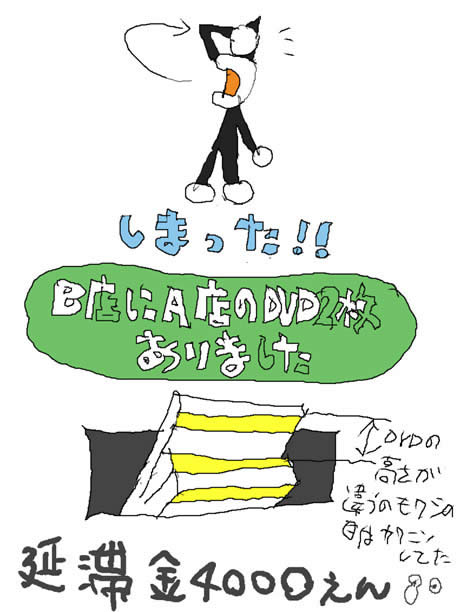 しまった!!
B店にA店のDVD2枚
ありました
DVDの
高さが
違うのモクシの
時はカクニン
してた
延滞金4000えん